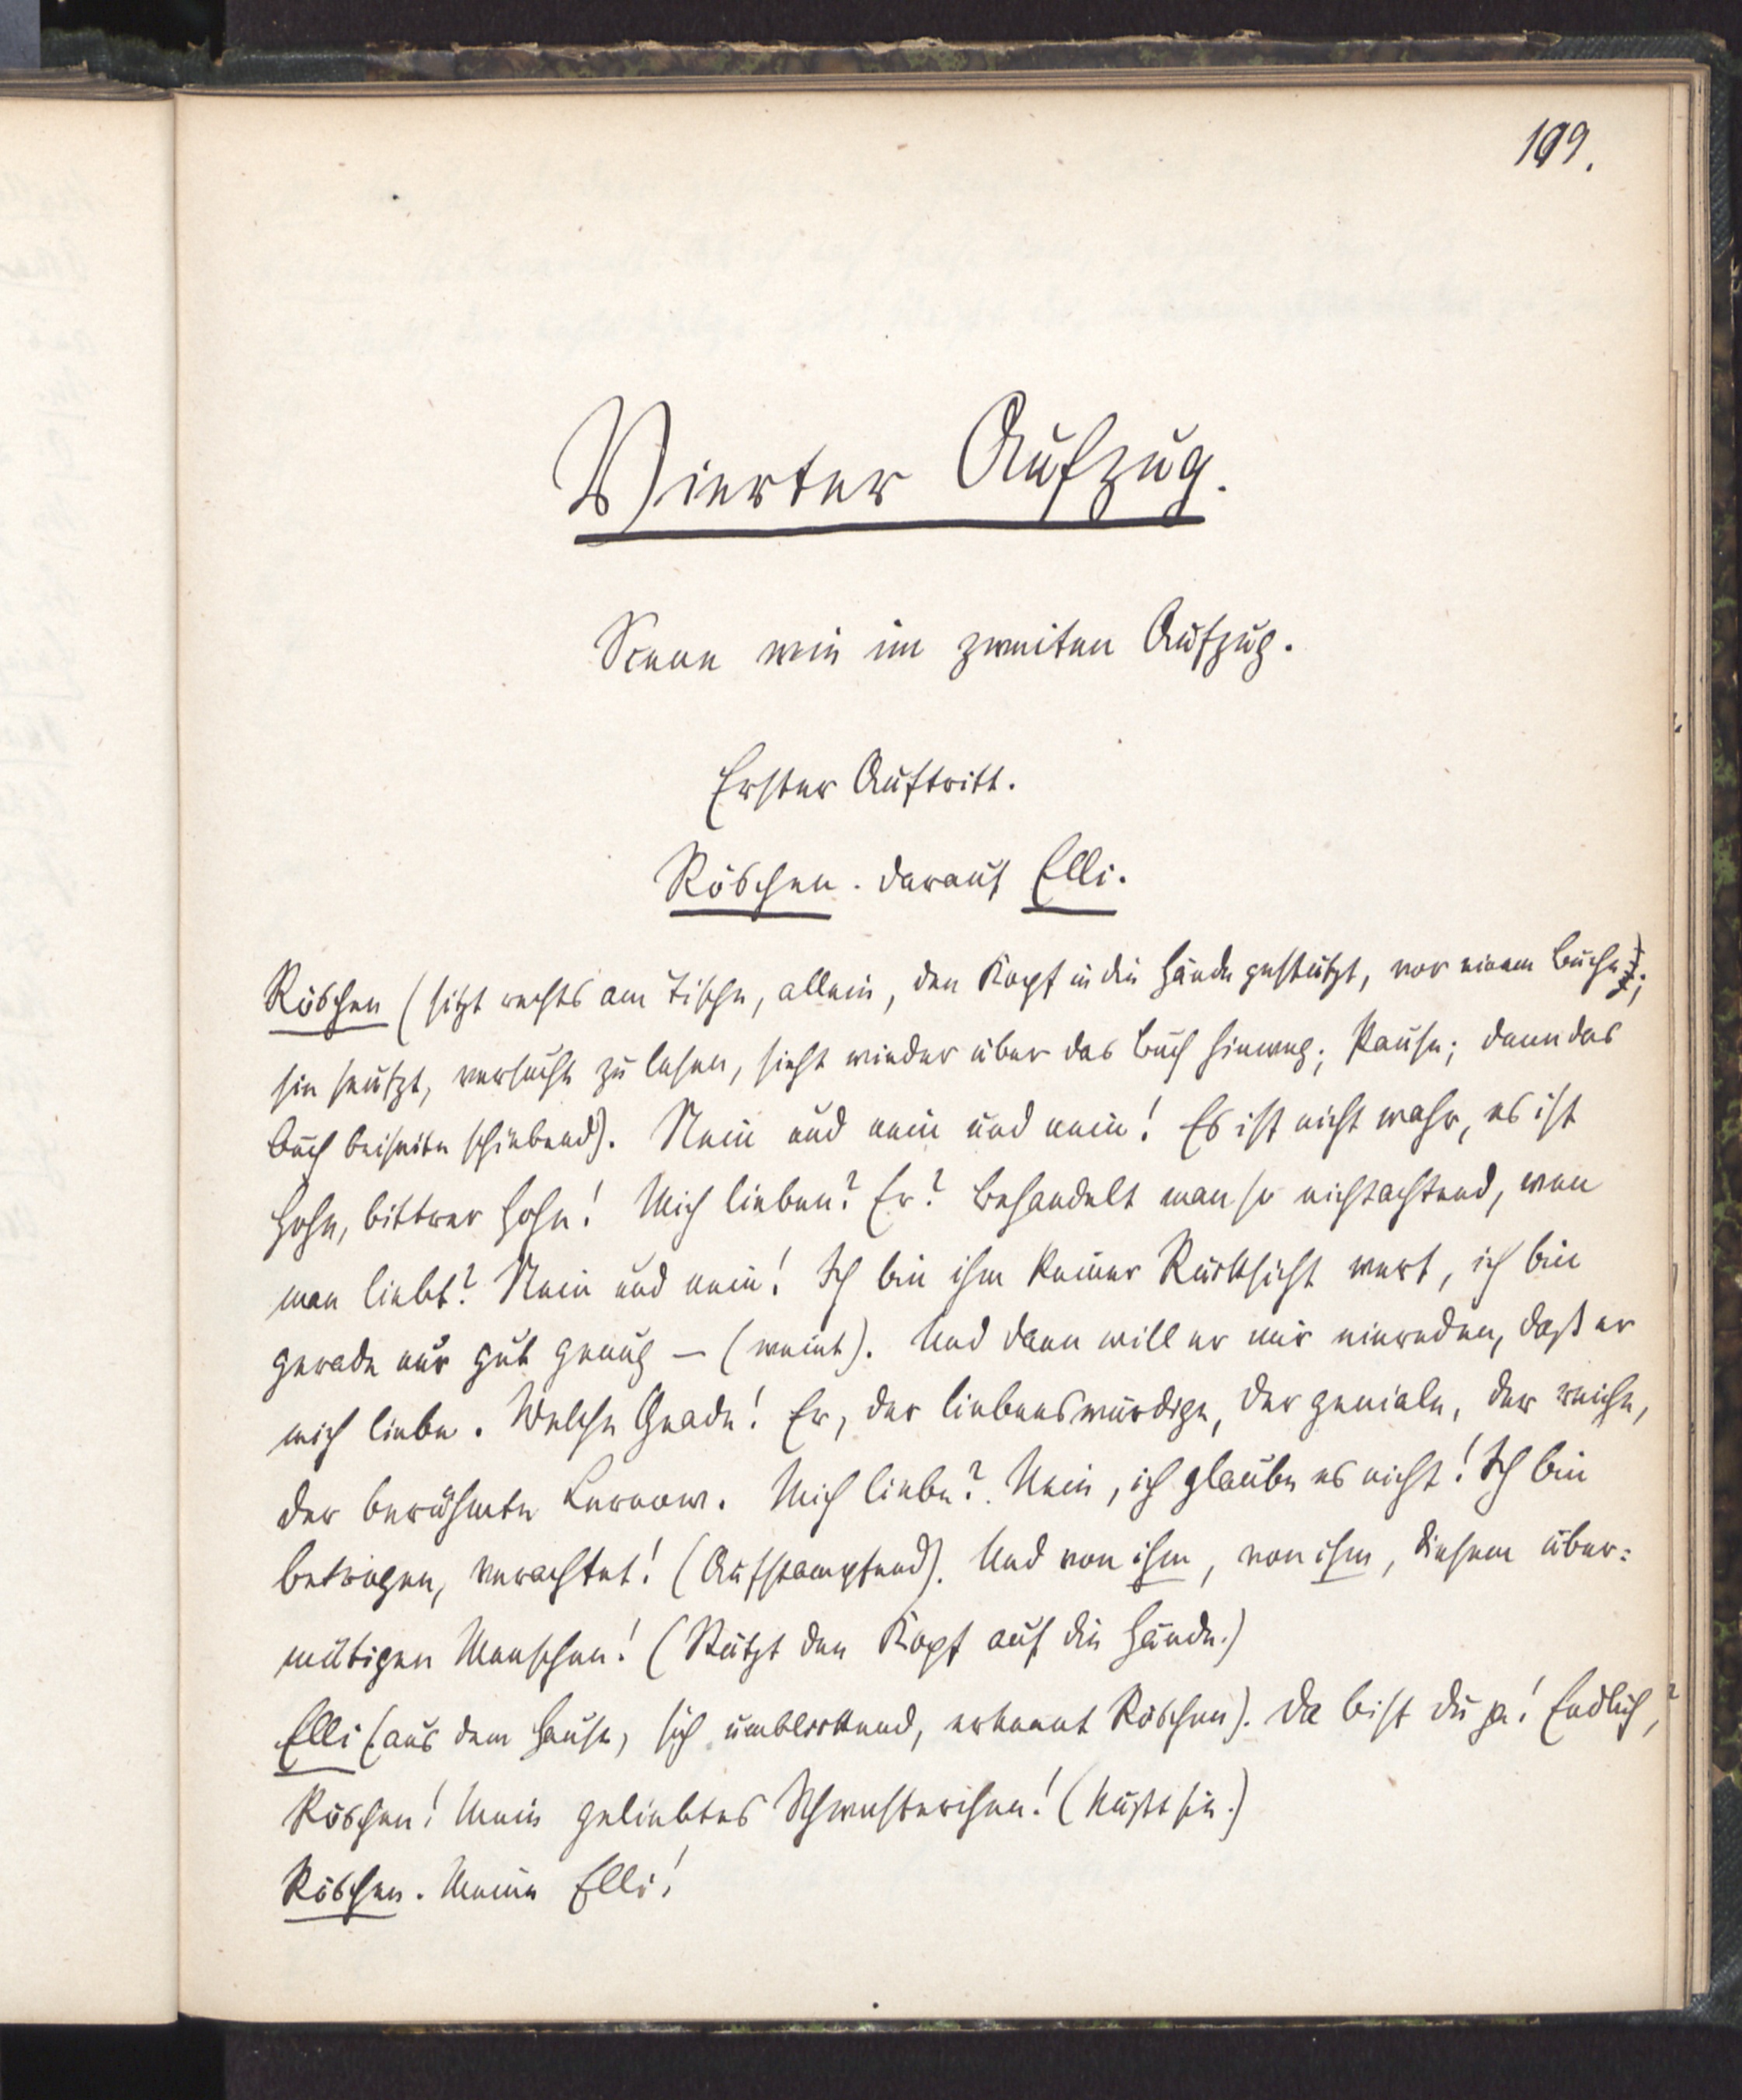 109.
Vierter Aufzug.
Scene wie im zweiten Aufzug.
Erster Auftritt.
Röschen. darauf Elli.
Röschen (sitzt rechts am Tische, allein, den Kopf in die Hände gestützt, vor einem Buche;
sie seufzt, versucht zu lesen, sieht wieder über das Buch hinweg; Pause; dann das
Buch beiseite schiebend). Nein und nein und nein! Es ist nicht wahr, es ist
Hohn, bittrer Hohn! Mich lieben? Er? Behandelt man so nichtachtend, wen
man liebt? Nein und nein! Ich bin ihm keiner Rücksicht wert, ich bin
gerade nur gut genug — (weint). Und dann will er mir einreden, daß er
mich liebe. Welche Gnade! Er, der liebenswürdige, der geniale, der reiche,
der berühmte Lernow. Mich liebe? Nein, ich glaube es nicht! Ich bin
betrogen, verachtet! (Aufstampfend). Und von ihm, von ihm, diesem über-
mütigen Menschen! (Stützt den Kopf auf die Hände.)
Elli (aus dem Hause, sich umblickend, erkennt Röschen). Da bist du ja! Endlich,
Röschen! Mein geliebtes Schwesterchen! (küßt sie.)
Röschen. Meine Elli!